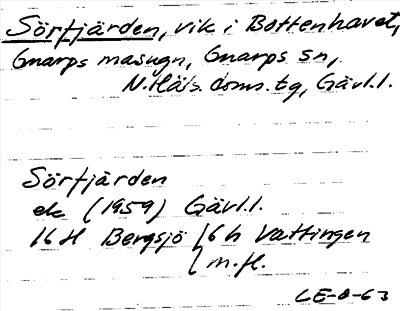 Sörfjärden, vik i Bottenhavet,
Gnarps masugn, Gnarps sn,
N.Häls. doms. tg, Gävl.l.
Sörfjärden
ek (1959) Gävl.l.
16 H Bergsjö 6 h Vattingen
m.fl.
LE-8-63